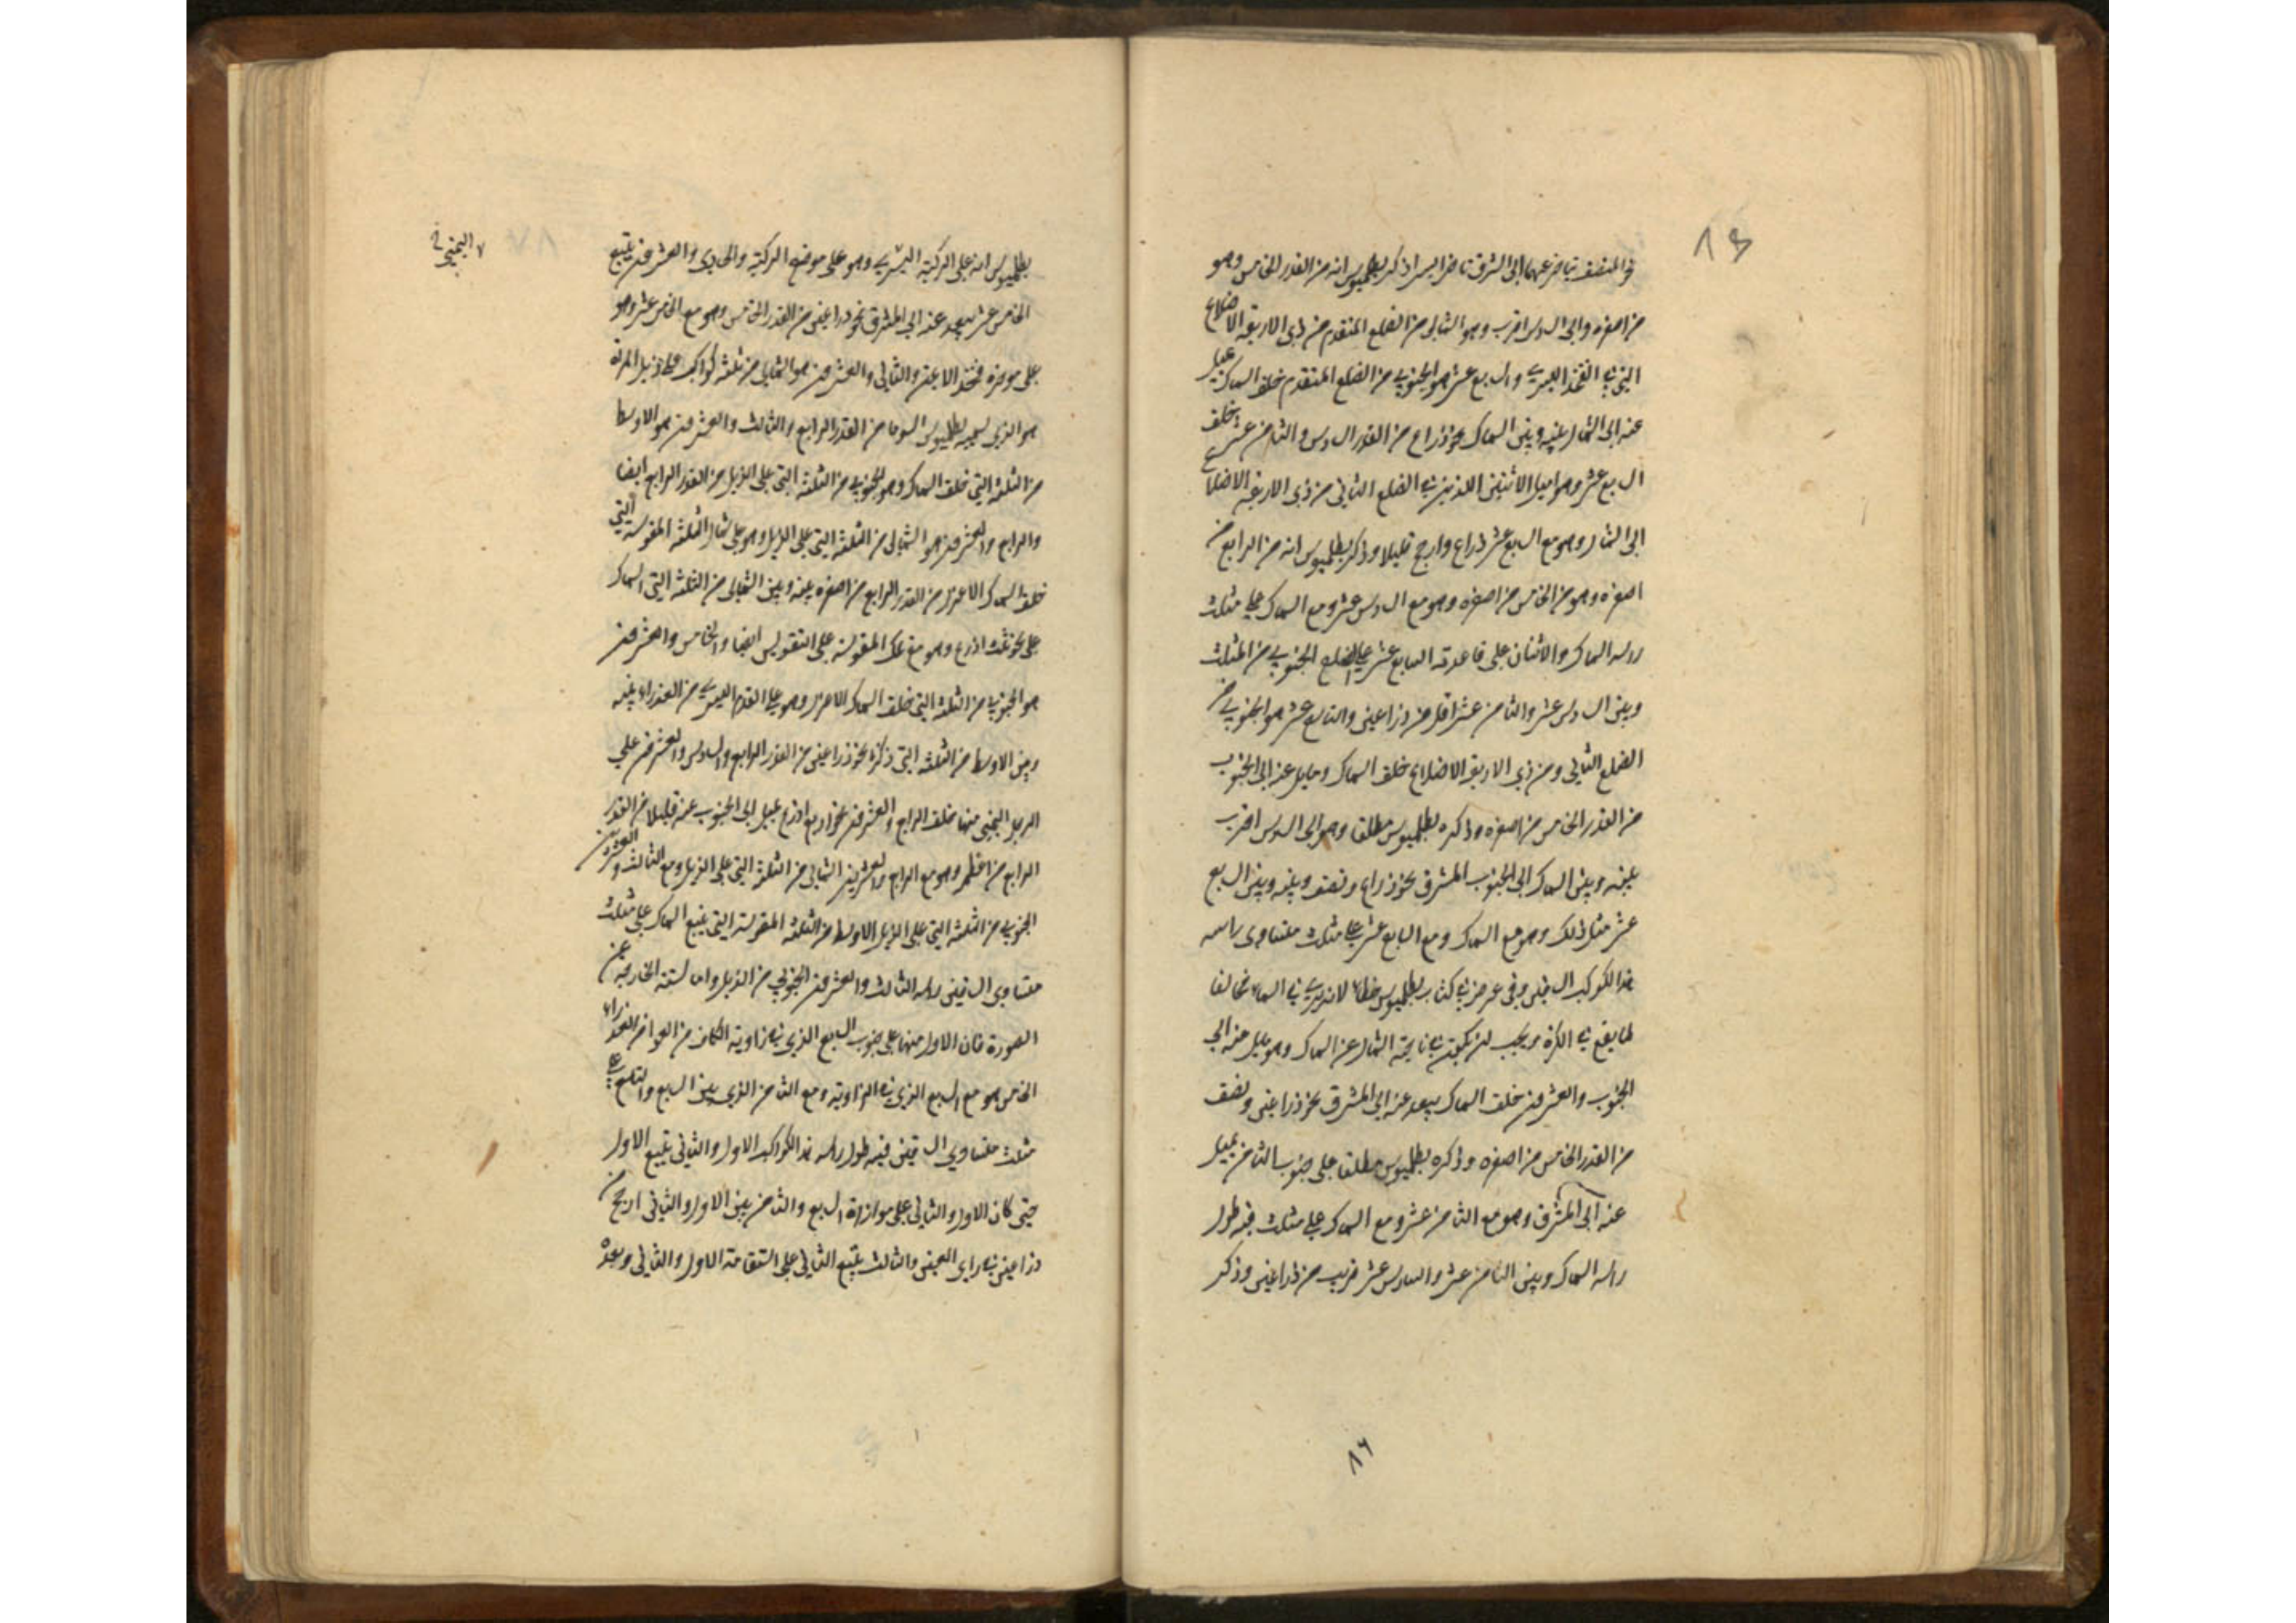 في المنتصف يتأخر عنهما الى الشرق تاخرا يسيرا ذكر بطلميوس انه من القدر الخامس وهو
من اصغره والى السادس اقرب وهو الشمالي من الضلع المتقدم من ذي الاربعة الاضلاع
التي في الفخذ اليسرى والسابع عشر هو الجنوبي من الضلع المتقدم خلف السماك يميل
عنه الى الشمال بينه وبين السماك نحو ذراع من القدر السادس والثامن عشر خلف
السابع عشر وهو اميل الاثنين اللذين في الضلع الثاني من ذي الاربعة الاضلاع
الى الشمال وهو مع السابع عشر ذراع وارجح قليلا وذكر بطلميوس انه من الرابع من
اصغره وهو من الخامس من اصغره وهو مع السادس عشر ومع السماك على مثلث
راسه السماك والاثنان على قاعدته السابع عشر على الضلع الجنوبي من المثلث
وبين السادس عشر والثامن عشر اقل من ذراعين والتاسع عشر هو الجنوبي من
الضلع الثاني ومن ذي الاربعة الاضلاع خلف السماك ومايل عنه الى الجنوب
من القدر الخامس من اصغره وذكره بطلميوس مطلقا وهو الى السادس اقرب
بينه وبين السماك الى الجنوب المشرق نحو ذراع ونصف وبينه وبين السابع
عشر مثل ذلك وهو مع السماك ومع السابع عشر على مثلث متساوي راسه
هذا الكوكب وفي عرضه في كتاب بطلميوس خطا لانه يرى في السماء مخالفا
لما يقع في الكرة ويجب ان يكون في ناحية الشمال عن السماك وهو يميل عنه الى
الجنوب والعشرون خلف السماك يبعد عنه الى المشرق نحو ذراعين ونصف
من القدر الخامس من اصغره وذكره بطلميوس مطلقا على جنوب الثامن يميل
عنه الى المشرق وهو مع الثامن عشر ومع السماك على مثلث فيه طول
راسه السماك وبين الثامن عشر والسادس عشر قريب من ذراعين وذكر
٨٦
بطلميوس انه على الركبة اليسرى وهو على موضع الركبة والحادي والعشرون يتبع
الخامس عشر يبعد عنه الى المشرق نحو ذراعين من القدر الخامس وهو مع الخامس عشر وهو
على موخره فخذ الايمن والثاني والعشرون هو الشمالي من ثلثة كواكب على ذيل المراة
هو الذي يسميه بطلميوس السوما من القدر الرابع والثالث والعشرون هو الاوسط
من الثلثة التي خلف السماك وهو الجنوبي من الثلثة التي على الذيل من القدر الرابع ايضا
والرابع والعشرون هو الشمالي من الثلثة التي على الذيل وهو على شمال الثلثة المقوسة التي
خلف السماك الاعزل من القدر الرابع من اصغره بينه وبين الشمالي من الثلثة التي السماك
على نحو ثلث اذرع وهو مع تلك المقوسة على التقويس ايضا والخامس والعشرون
هو الجنوبي من الثلثة التي خلف السماك الاعزل وهو على القدم اليسرى من العذراء بينه
وبين الاوسط من الثلثة التي ذكرنا نحو ذراعين من القدر الرابع والسادس والعشرون على
الرجل اليمنى منها خلف الرابع والعشرون نحو اربع اذرع يميل الى الجنوب عنه قليلا من القدر
الرابع من اعظمه وهو مع الرابع والعشرين الشمالي من الثلثة التي على الذيل ومع الثالث والعشرين
الجنوبي من الثلثة التي على الذيل الاوسط من الثلثة المقوسة التي يتبع السماك على مثلث
متساوي الساقين راسه الثالث والعشرون الجنوبي من الذيل واما الستة الخارجة عن
الصورة فان الاول منها على جنوب السابع الذي في زاوية الكاف من العوا من العذراء
الخامس هو مع السابع الذي في الزاوية ومع الثامن الذي بين السابع والتاسع على
مثلث متساوي الساقين فيه طول راسه هذا الكوكب الاول والثاني يتبع الاول
حتى كان الاول والثاني على موازاة السابع والثامن بين الاول والثاني ارجح من
ذراعين في راي العين والثالث يتبع الثاني على استقامة الاول والثاني وبعده